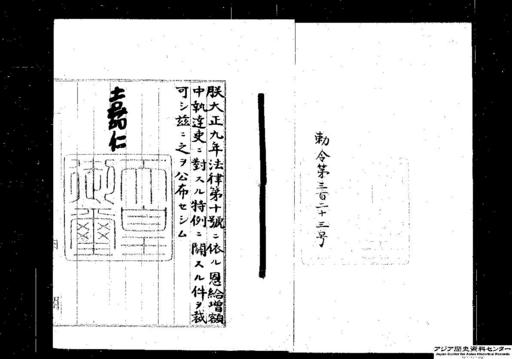 勅令第三百二十三号
朕大正九年法律第十號ニ依ル恩給増額
中執達吏ニ對スル特例ニ關スル件ヲ裁
可シ玆ニ之ヲ公布セシム
嘉仁
天皇
御璽
アジア歴史資料センター
Japan Center for Asian Historical Records